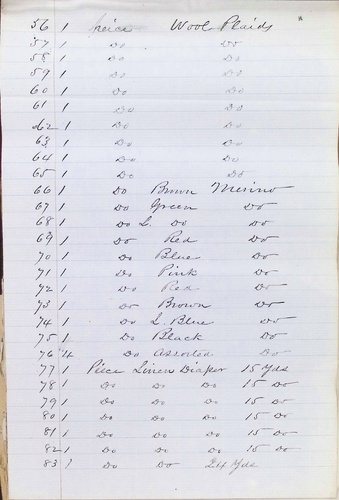 56 1 Peice Wool Plaids
57 1 Do Do
58 1 Do Do
59 1 Do Do
60 1 Do Do
61 1 Do Do
62 1 Do Do
63 1 Do Do
64 1 Do Do
65 1 Do Do
66 1 Do Brown Merino
67 1 Do Green Do
68 1 Do L. Do Do
69 1 Do Red Do
70 1 Do Blue Do
71 1 Do Pink Do
72 1 Do Red Do
73 1 Do Brown Do
74 1 Do L. Blue Do
75 1 Do Black Do
76 4 Do Assorted Do
77 1 Piece Linen Diaper 15 Yds
78 1 Do Do Do 15 Do
79 1 Do Do Do 15 Do
80 1 Do Do Do 15 Do
81 1 Do Do Do 15 Do
82 1 Do Do Do 15 Do
83 1 Do Do 24 Yds